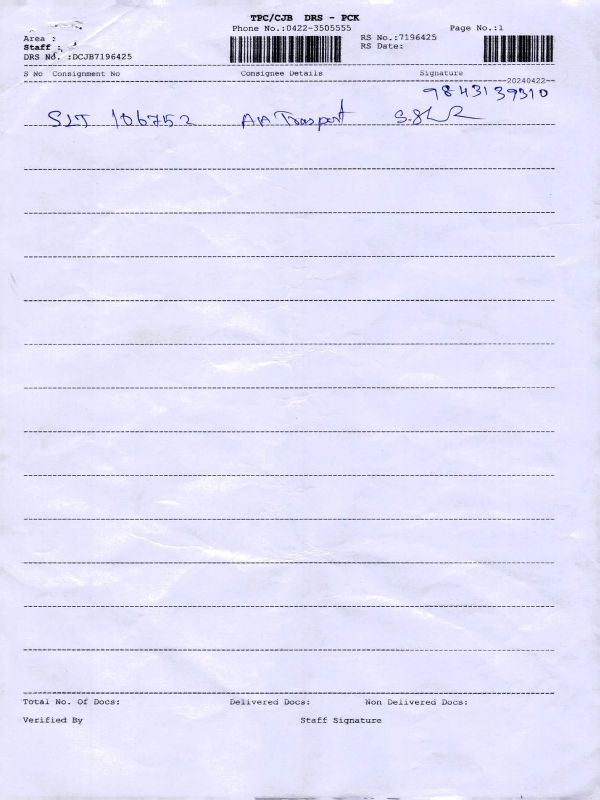 TPC/CJB DRS - PCK
Phone No.:0422-3505555 Page No.:1
Area :
Staff :
DRS No. :DCJB7196425
RS No.:7196425
RS Date:
S No Consignment No Consignee Details Signature
20240422
9843139310
SLT 106752 AA Transport
Total No. Of Docs: Delivered Docs: Non Delivered Docs:
Verified By Staff Signature